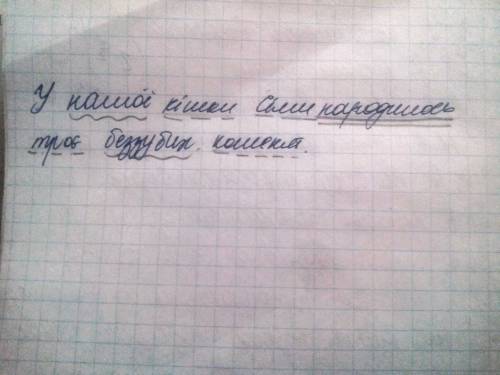 У нашої кішки Сьми народилось
троє беззубих кошенят.